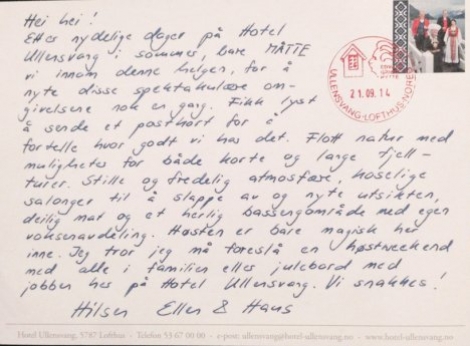 Hei hei!
Etter nydelige dager på Hotel
Ullensvang i sommer, bare MÅTTE
vi innom denne helgen, for å
nyte disse spektakulære om-
givelsene nok en gang. Fikk lyst
å sende et postkort for å
fortelle hvor godt vi har det. Flott natur med
muligheter for både korte og lange fjell-
turer. Stille og fredelig atmosfære, koselige
salonger til å slappe av og nyte utsikten,
deilig mat og et herlig bassengområde med egen
voksenavdeling. Høsten er bare magisk her
inne. Jeg tror jeg må foreslå en høstweekend
med alle i familien eller julebord med
jobben her på Hotel Ullensvang. Vi snakkes!
Hilsen Ellen & Hans
21.09.14
ULLENSVANG-LOFTHUS-NORE
Hotel Ullensvang, 5787 Lofthus - Telefon 53 67 00 00 - e-post: ullensvang@hotel-ullensvang.no - www.hotel-ullensvang.no